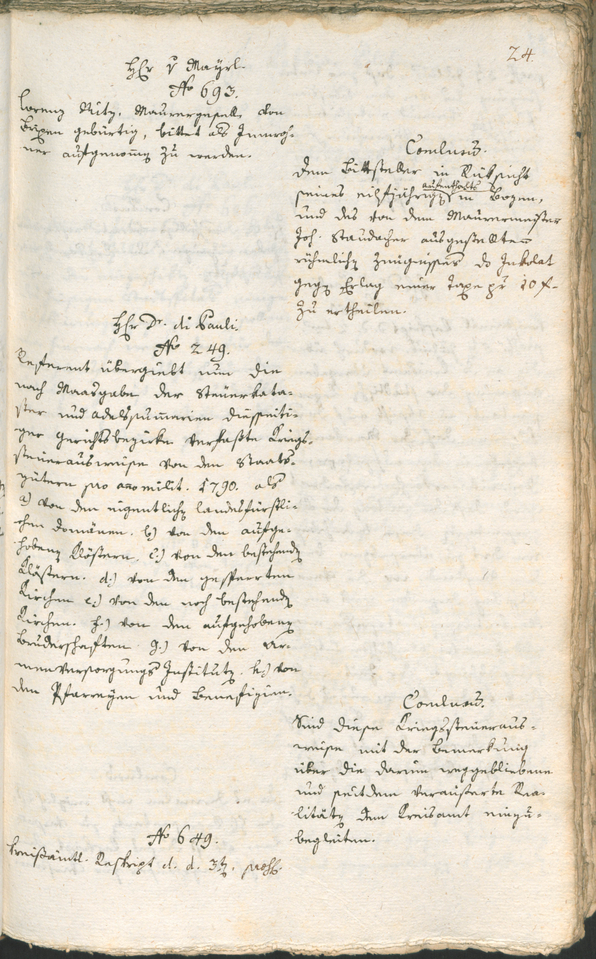 24.
H. v Mayrl.
No 693.
Lorenz Ritz, Maurergesell, von
Brixen gebürtig, bittet als Innwoh-
ner aufgenomen zu werden.
Conclusum.
Dem Bittsteller in Rüksicht
seines eilfjährigen aufenthalts in Bozen,
und des von dem Maurermeister
Joh. Staudacher ausgestellten
rühmlichen Zeugnisses das Inkolat
gegen Erlag einer Taxe zu 10 f.
zu ertheilen.
H. Dr. di Pauli.
No 249.
Referent übergiebt nun die
nach Maasgabe der Steuerkata-
ster und adelssummarien diesseiti-
ger Gerichtsbezirke verfaßte Kriegs-
steuerausweise von den Staats-
gütern pro anno milit. 1790. als
a) von den eigentlichen landesfürstli-
chen Domänen. b) von den aufge-
hobenen Klöstern, c.) von den bestehenden
Klöstern. d.) von den gesperrten
Kirchen e.) von den noch bestehenden
Kirchen. f.) von den aufgehobenen
Bruderschaften g.) von den Ar-
menversorgungs Instituten. h.) von
den Pfarreyen und Benefizien.
Conclusum.
Sind diese Kriegssteueraus-
weise mit der Bemerkung
über die darum weggebliebene
und seitdem veräusserte Rea-
litäten dem Kreisamt einzu-
begleiten.
No 649.
Kreisämtl. Reskript d. d. 3ten,